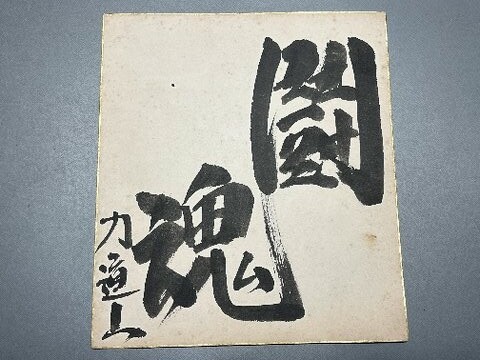 闘
魂
力道山